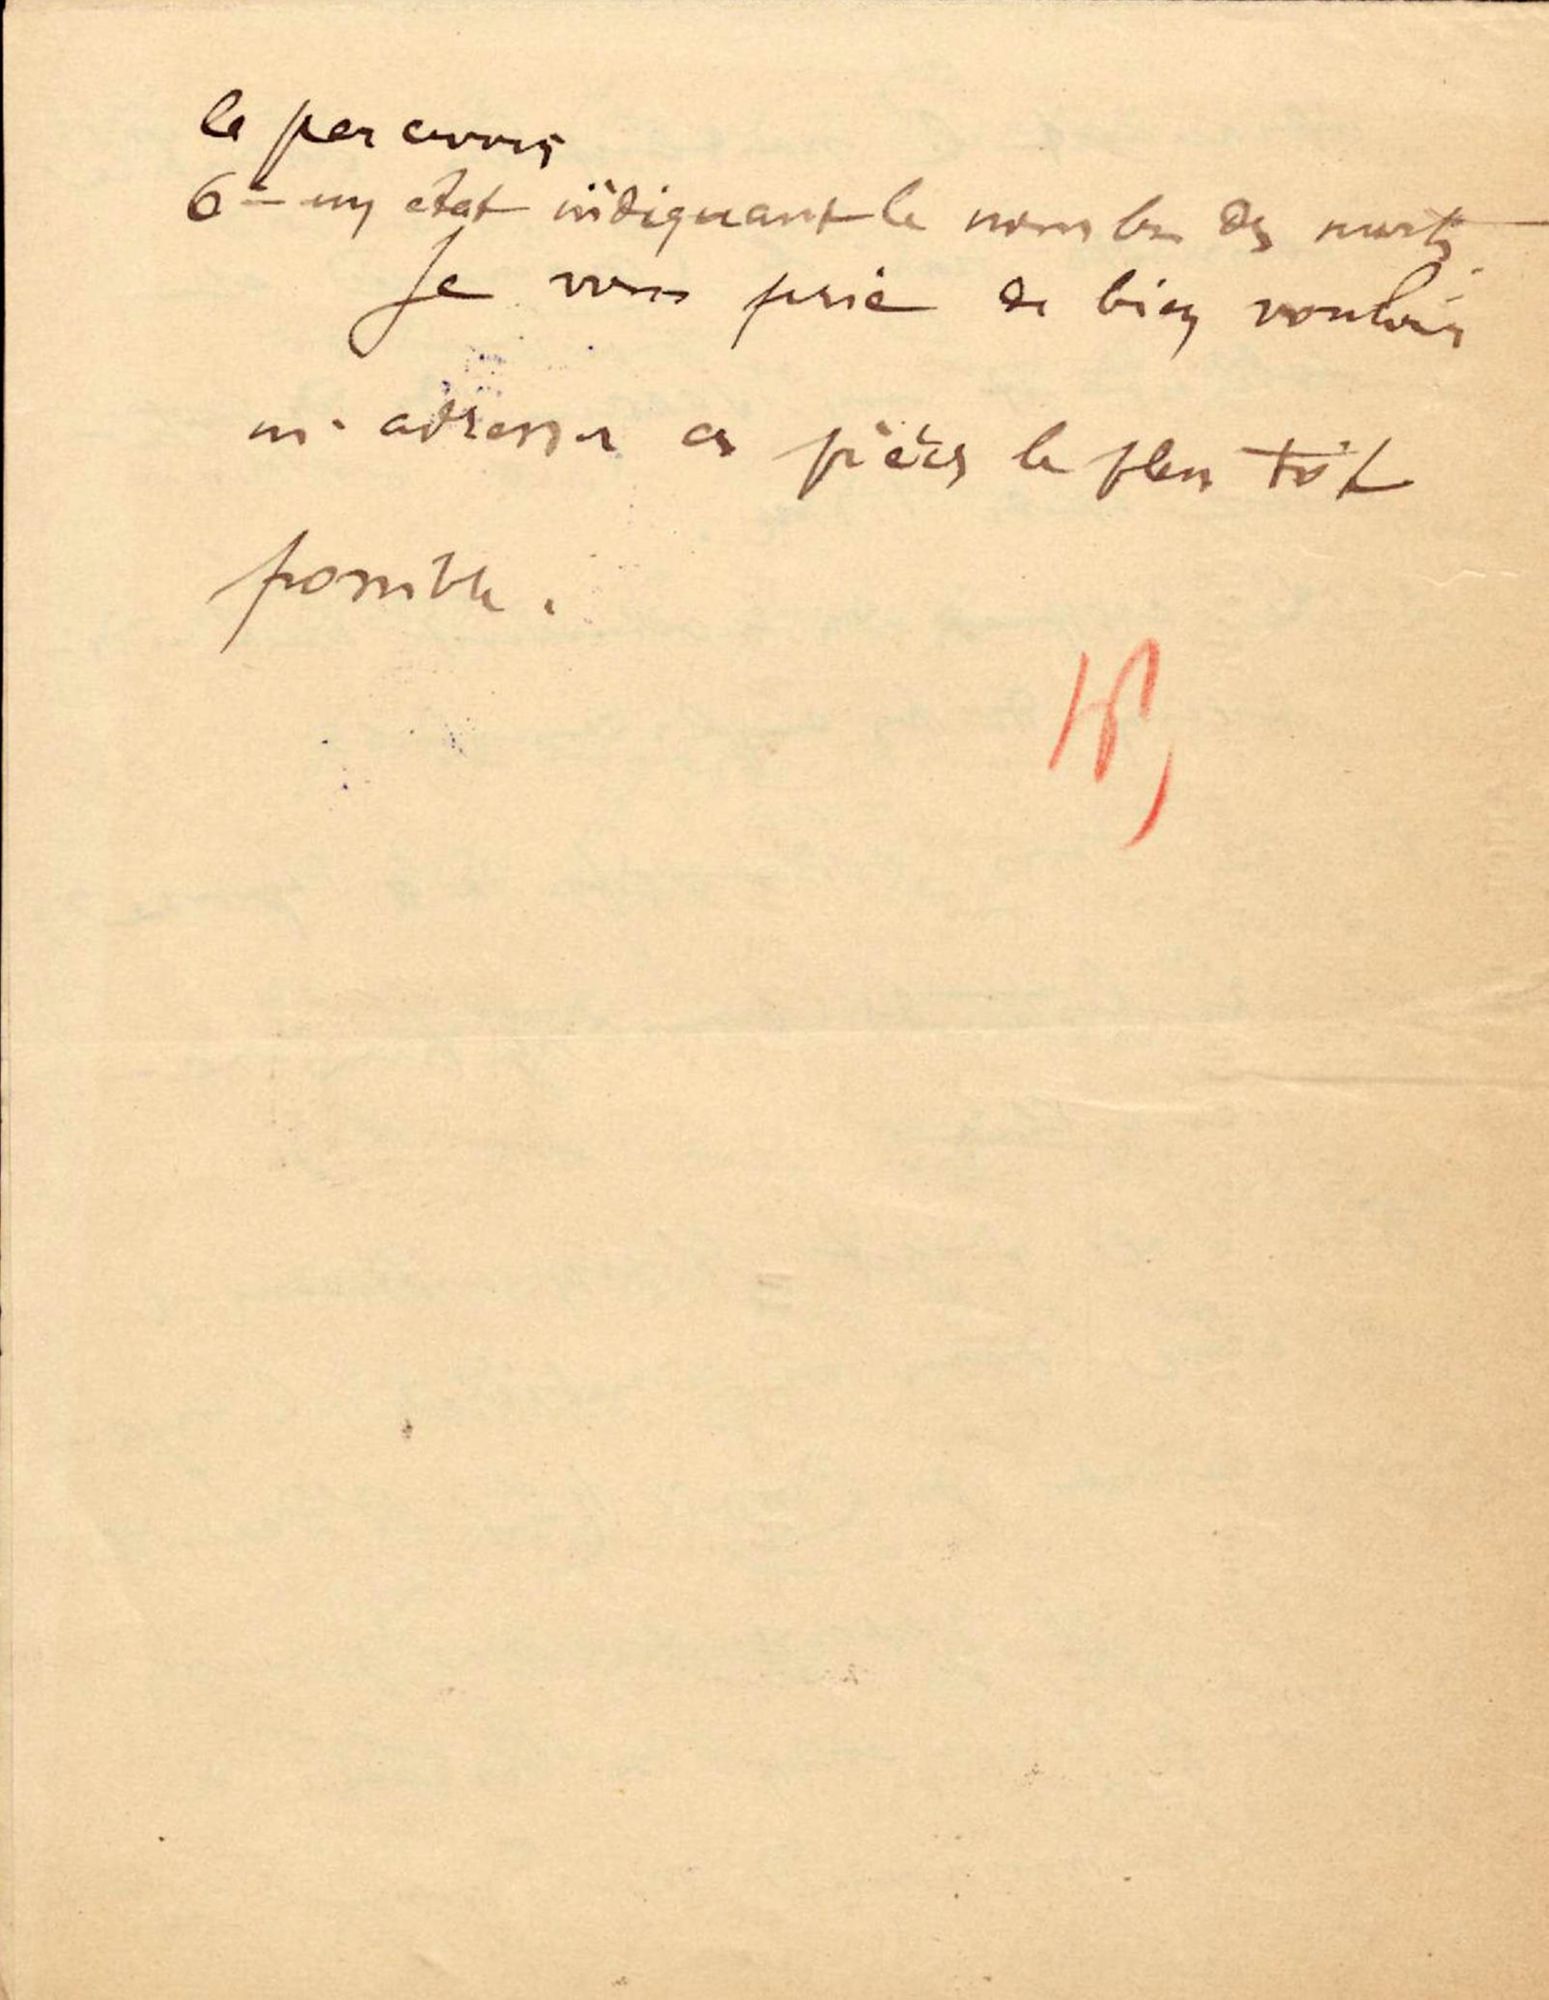 le percevoir
6° un état indiquant le nombre des morts.
Je vous prie de bien vouloir
m'adresser ces pièces le plus tôt
possible.